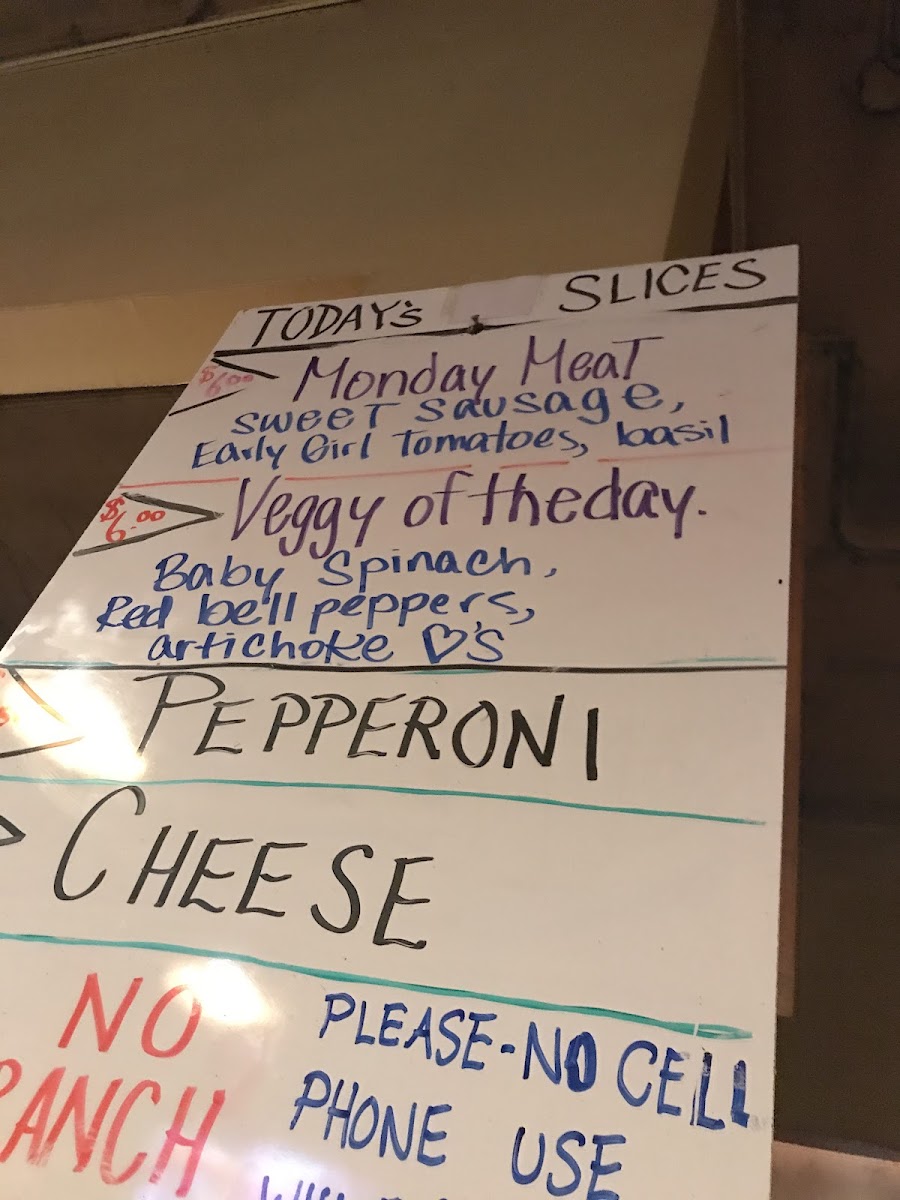 TODAY'S SLICES
$6.00 Monday Meat
Sweet Sausage,
Early Girl Tomatoes, basil
$6.00 Veggy of the day.
Baby Spinach,
Red bell peppers,
artichoke ♡'s
PEPPERONI
CHEESE
NO
RANCH
PLEASE-NO CELL
PHONE USE